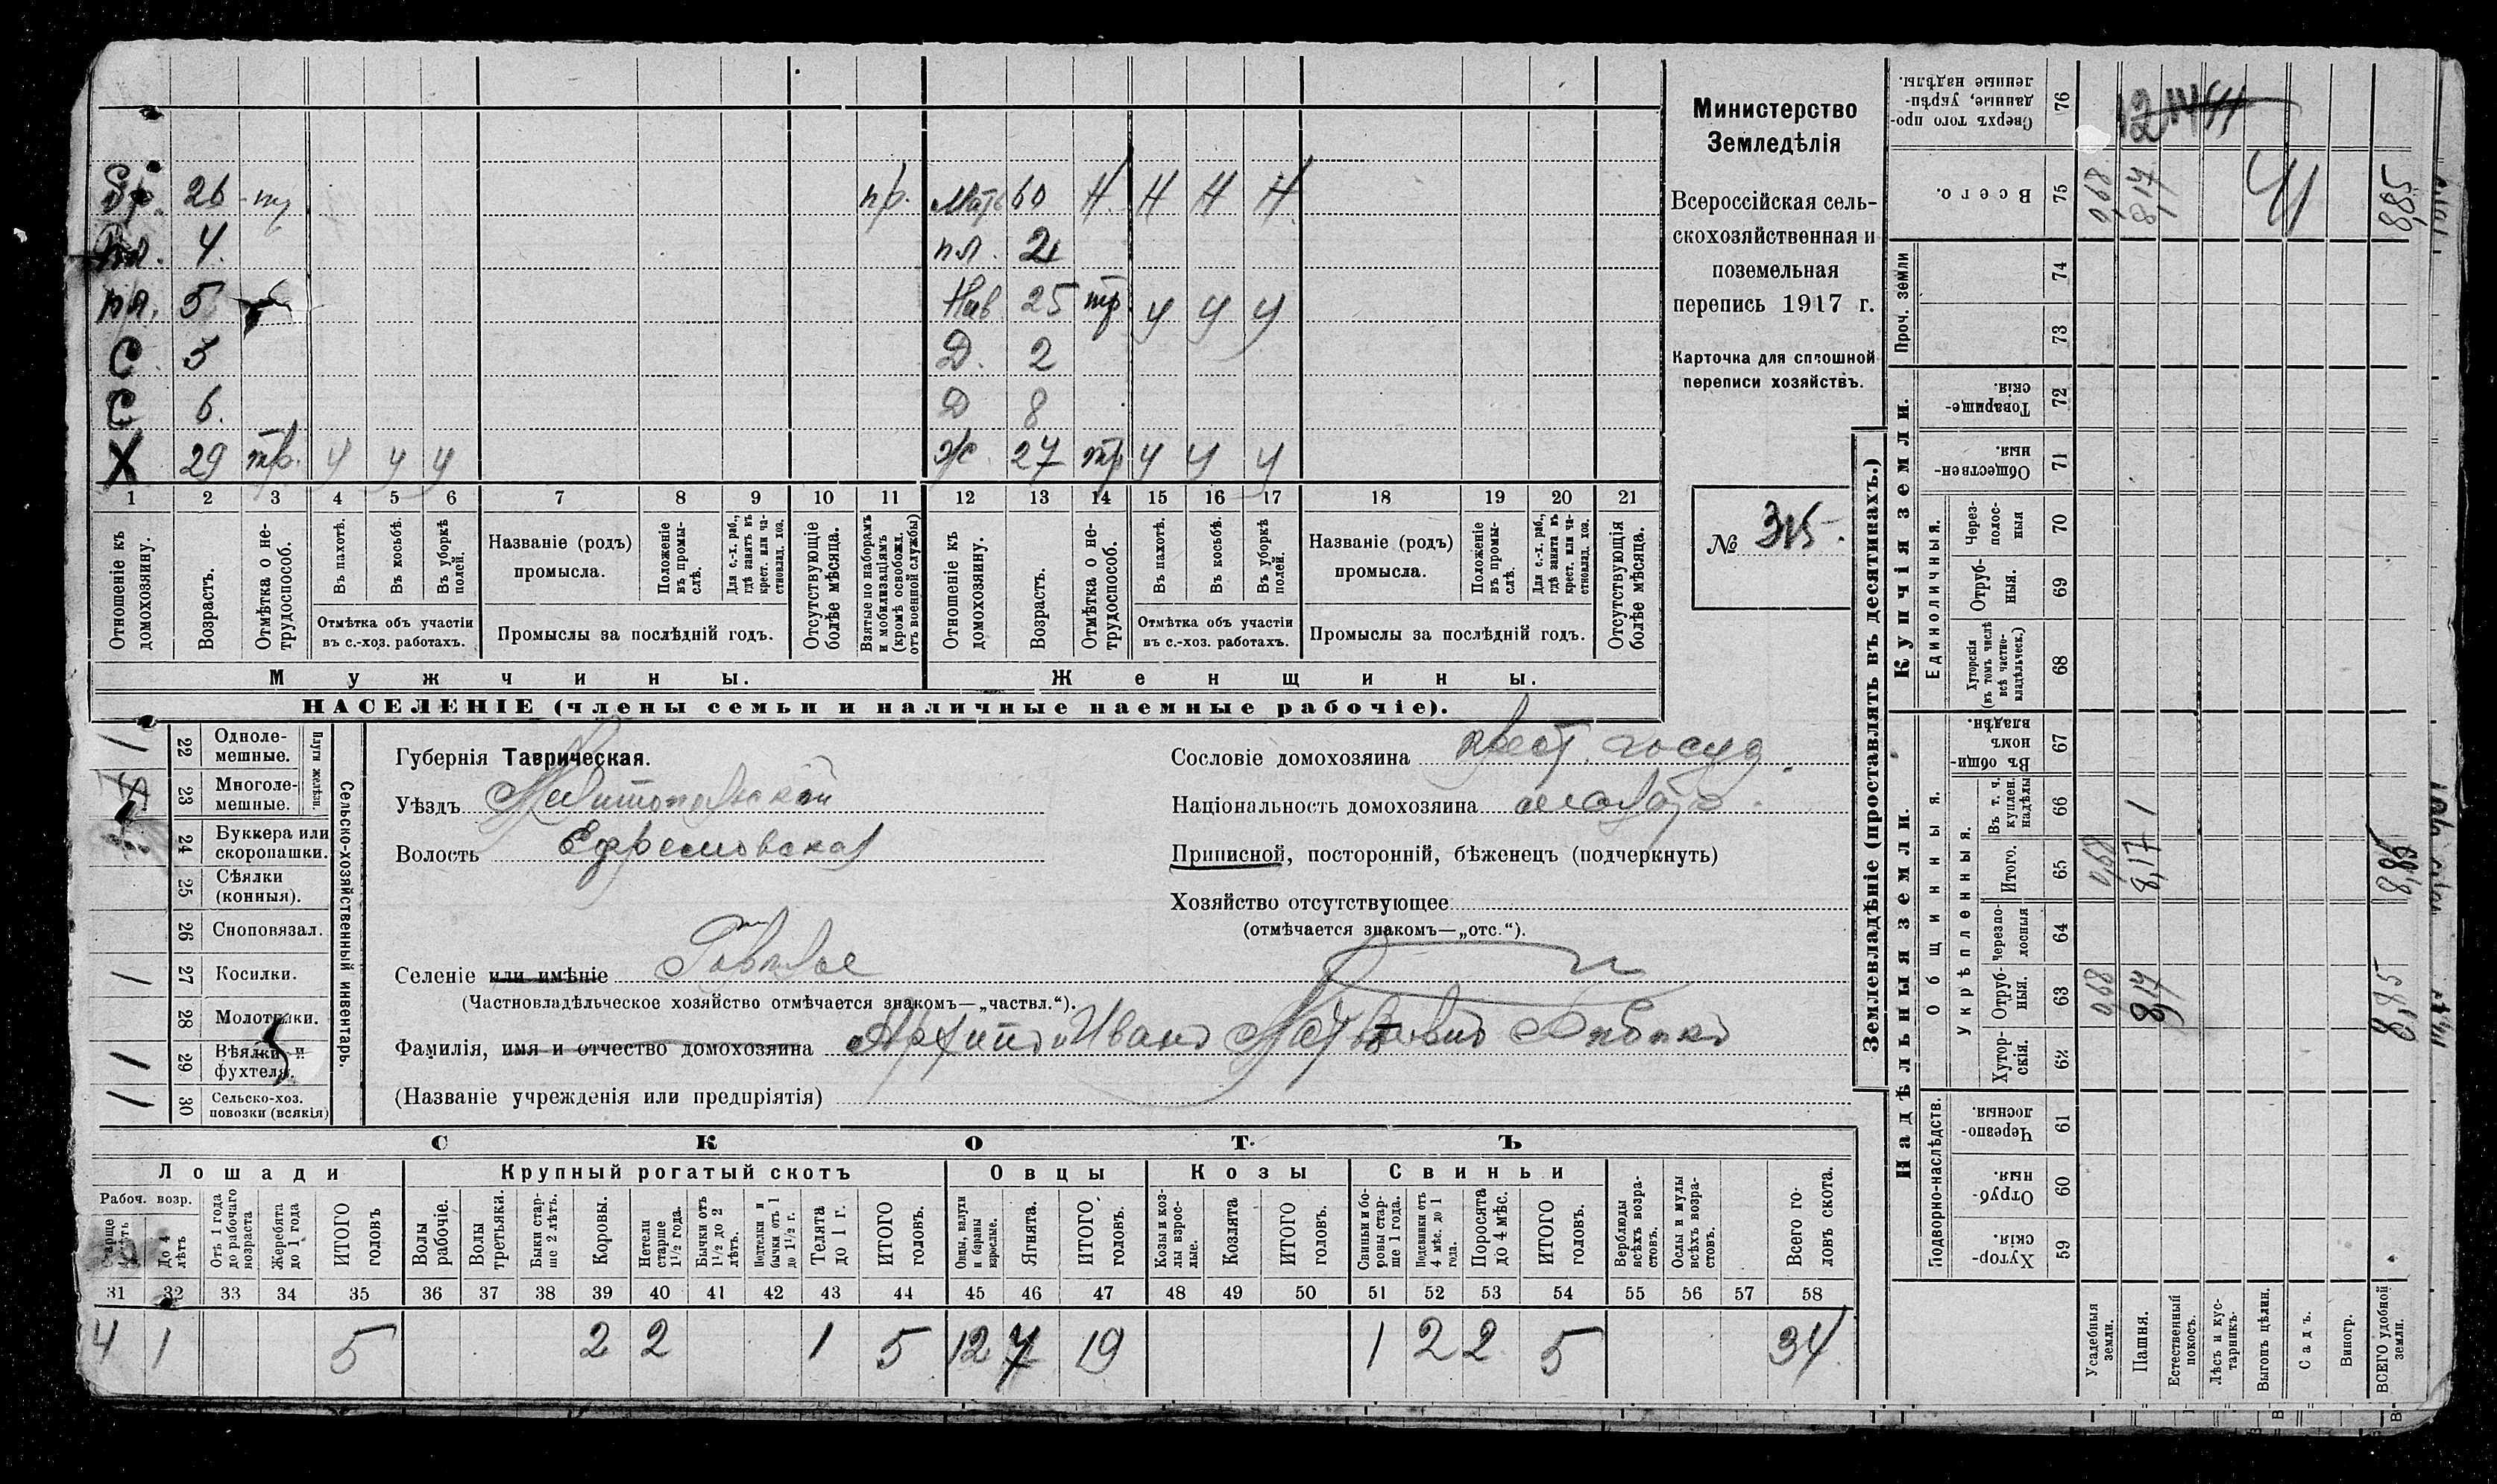 Министерство
Земледѣлія
Всероссійская сель-
скохозяйственная и
поземельная
перепись 1917 г.
Карточка для сплошной
переписи хозяйствъ.
№ 315.
Бр. 26 тр пр. Мать 60 Н. Н Н Н
пл. 4. пл. 2
пл. 5 Нев 25 тр у у у
С 3 Д. 2
С 6. Д 8
Х 29 тр. у у у Ж. 27 тр у у у
1 2 3 4 5 6 7 8 9 10 11 12 13 14 15 16 17 18 19 20 21
Отношеніе къ домохозяину.
Возрастъ.
Отмѣтка о не-трудоспособ.
Въ пахотѣ.
Въ косьбѣ.
Въ уборкѣ полей.
Отмѣтка объ участіи
въ с.-хоз. работахъ.
Названіе (родъ)
промысла.
Положеніе въ промы-слѣ.
Для с.-х. раб., гдѣ занятъ въ крест. или ча-стновлад. хоз.
Промыслы за послѣдній годъ.
Отсутствующіе болѣе мѣсяца.
Взятые по наборамъ и мобилизаціямъ (кромѣ освобожд. отъ военной службы)
Отношеніе къ домохозяину.
Возрастъ.
Отмѣтка о не-трудоспособ.
Въ пахотѣ.
Въ косьбѣ.
Въ уборкѣ полей.
Отмѣтка объ участіи
въ с.-хоз. работахъ.
Названіе (родъ)
промысла.
Положеніе въ промы-слѣ.
Для с.-х. раб., гдѣ занята въ крест. или ча-стновлад. хоз.
Промыслы за послѣдній годъ.
Отсутствующія болѣе мѣсяца.
Мужчины. Женщины.
НАСЕЛЕНІЕ (члены семьи и наличные наемные рабочіе).
Сельско-хозяйственный инвентарь.
Плуги желѣзн.
1 22 Одноле-мешные.
23 Многоле-мешные.
24 Буккера или скоропашки.
25 Сѣялки (конныя).
26 Сноповязал.
1 27 Косилки.
28 Молотилки.
1 29 Вѣялки и фухтеля.
1 30 Сельско-хоз. повозки (всякія)
Губернія Таврическая.
Уѣздъ Мелитопольскій
Волость Ефремовская
Селеніе или имѣніе
(Частновладѣльческое хозяйство отмѣчается знакомъ—„частвл.“).
Фамилія, имя и отчество домохозяина Архипъ и Иванъ
(Названіе учрежденія или предпріятія)
Сословіе домохозяина крест. госуд.
Національность домохозяина малор.
Приписной, посторонній, бѣженецъ (подчеркнуть)
Хозяйство отсутствующее
(отмѣчается знакомъ—„отс.“).
СКОТЪ
Лошади Крупный рогатый скотъ Овцы Козы Свиньи
Рабоч. возр.
Старше 4 лѣтъ
До 4 лѣтъ
Отъ 1 года до рабочаго возраста
Жеребята до 1 года
ИТОГО головъ
Волы рабочіе.
Волы третьяки.
Быки стар-ше 2 лѣтъ.
Коровы.
Нетели старше 1½ года.
Бычки отъ 1½ до 2 лѣтъ.
Подтелки и бычки отъ 1 до 1½ г.
Телята до 1 г.
ИТОГО головъ.
Овцы, валухи и бараны взрослые.
Ягнята.
ИТОГО головъ.
Козы и коз-лы взрос-лые.
Козлята
ИТОГО головъ.
Свиньи и бо-ровы стар-ше 1 года.
Подсвинки отъ 4 мѣс. до 1 года.
Поросята до 4 мѣс.
ИТОГО головъ.
Верблюды всѣхъ возра-стовъ.
Ослы и мулы всѣхъ возра-стовъ.
Всего го-ловъ скота.
31 32 33 34 35 36 37 38 39 40 41 42 43 44 45 46 47 48 49 50 51 52 53 54 55 56 57 58
4 1 5 2 2 1 5 12 7 19 1 2 2 5 34
Землевладѣніе (проставлять въ десятинахъ.)
Надѣльныя земли. Купчія земли. Проч. земли
Подворно-наслѣдств.
Общинныя.
Укрѣпленныя.
Единоличныя.
Хутор-скія. 59
Отруб-ныя. 60
Черезпо-лосныя. 61
Хутор-скія. 62
Отруб-ныя. 63 0,68 8,17 8,85
Черезпо-лосныя 64
Итого. 65 0,68 8,17 8,85
Въ т. ч. куплен. надѣлы 66
Въ общи-номъ владѣн. 67
Хуторскія (въ томъ числѣ всѣ частно-владѣльческ.) 68
Отруб-ныя. 69
Через-полос-ныя 70
Обществен-ныя. 71
Товарище-скія. 72
73
74
Всего. 75 0,68 8,17 8,85
Сверхъ того про-данные, укрѣп-ленные надѣлы. 76
Усадебныя земли.
Пашня.
Естественный покосъ.
Лѣсъ и кус-тарникъ.
Выгонъ цѣлин.
Садъ.
Виногр.
ВСЕГО удобной земли.